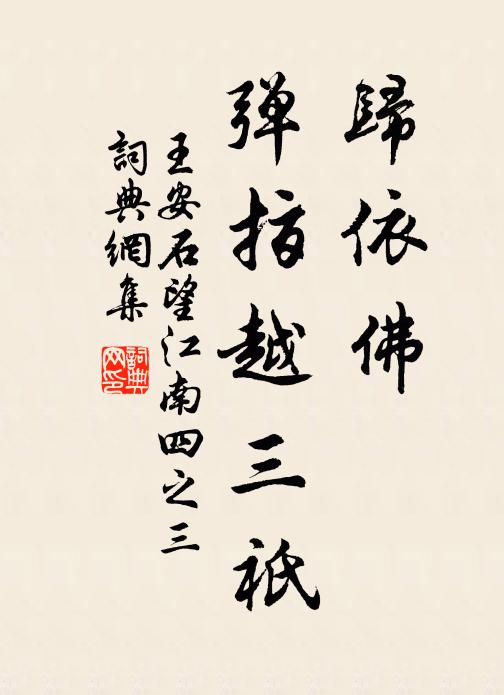 歸依佛
弾指越三祇
王安石望江南四之三
詞典網集
詞典
网印